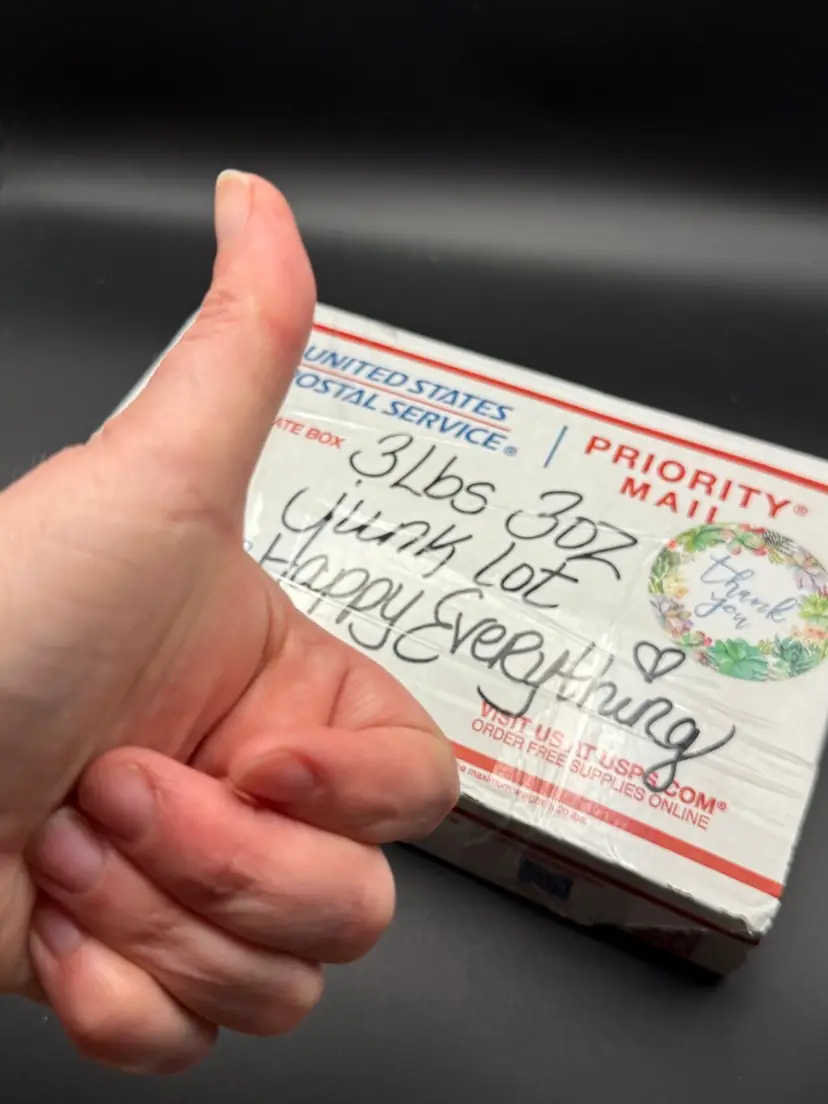 UNITED STATES
POSTAL SERVICE®
PRIORITY®
MAIL
ATE BOX
3Lbs 3oz
Junk Lot
Happy Everything
thank
you
VISIT US AT USPS.COM®
ORDER FREE SUPPLIES ONLINE
maximum weight is 20 lbs.